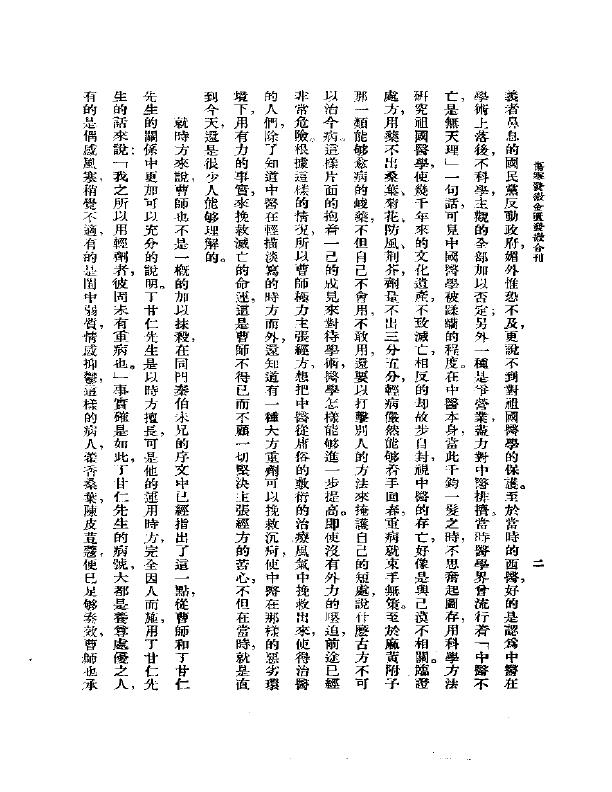 傷寒發微金匱發微合刊
二
義者鼻息的國民黨反動政府，媚外惟恐不及，更說不到對祖國醫學的保護。至於當時的西醫，好的是認爲中醫在
學術上落後，不科學，主觀的全部加以否定；另外一種是爭營業，盡力對中醫排擠。當時醫學界會流行着「中醫不
亡是無天理」一句話，可見中國醫學被蹂躪的程度。在中醫本身，當此千鈞一髮之時，不思奮起圖存，用科學方法
研究祖國醫學，使幾千年來的文化遺產，不致滅亡，相反的却故步自封，視中醫的存亡，好像是與己漠不相關。臨證
處方，用藥不出桑葉、菊花、防風、荆芥，劑量不出三分五分，輕病儼然能够着手回春，重病就束手無策。至於麻黃附子
那一類能够愈病的峻藥，不但自己不會用，不敢用，還要以打擊別人的方法來掩護自己的短處，說什麼古方不可
以治今病。這樣片面的抱着一己的成見來對待學術，醫學怎樣能够進一步提高。即使沒有外力的壓迫，前途已經
非常危險。根據這樣的情況，所以曹師極力主張經方，想把中醫從庸俗的敷衍的治療風氣中挽救出來，使得治醫
的人們，除了知道中醫在輕描淡寫的時方而外，還知道有一種大方重劑可以挽救沉疴，使中醫在那樣的惡劣環
境下，用有力的事實來挽救滅亡的命運，這是曹師不得已而不顧一切堅決主張經方的苦心，不但在當時就是直
到今天還是很少人能够理解的。
就時方來說，曹師也不是一概的加以抹殺，在同門秦伯未兄的序文中已經指出了這一點，從曹師和丁甘仁
先生的關係中更加可以充分的說明。丁甘仁先生是以時方擅長，可是他的運用時方，完全因人而施，用了甘仁先
生的話來說：「我之所以用輕劑者，彼固未有重病也。」事實確是如此，丁甘仁先生的病號，大都是養尊處優之人，
有的是偶感風寒，稍覺不適，有的是閨中弱質，情感抑鬱，這樣的病人，藿香桑葉，陳皮荳蔻，便已足够奏效，曹師也承